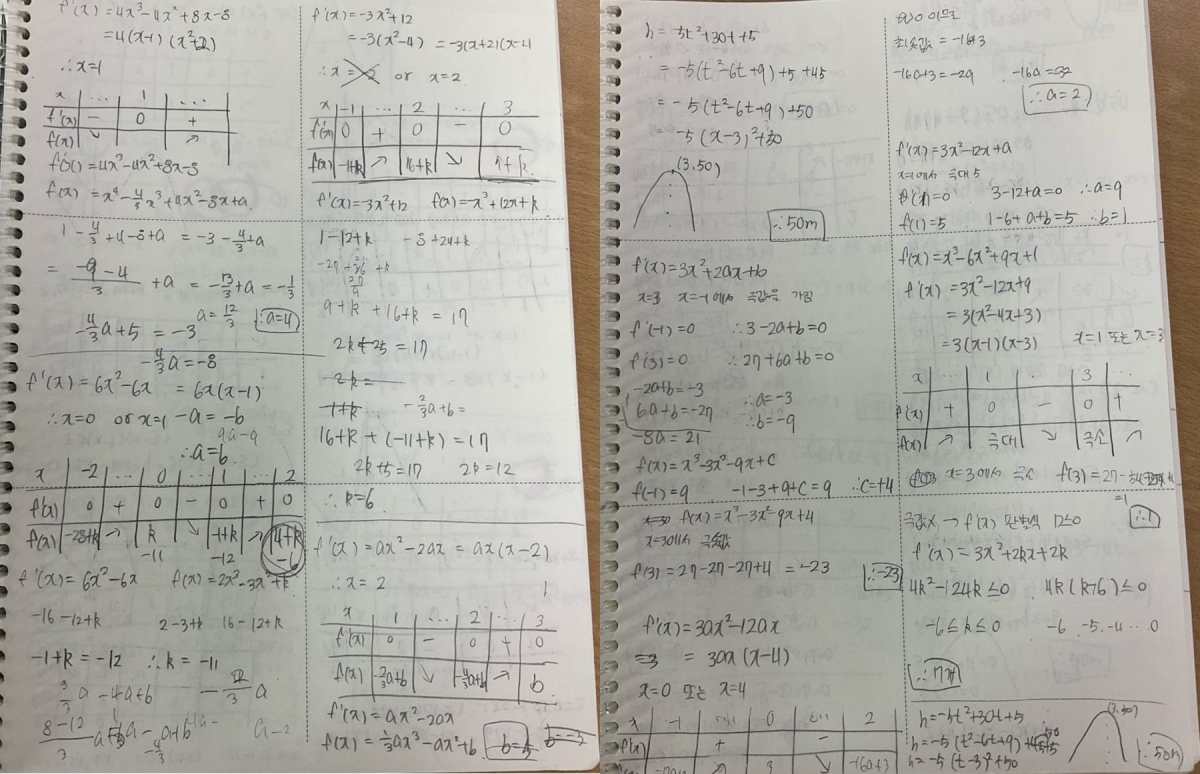 f'(x) = 4x³-4x²+8x-8
= 4(x-1)(x²+2)
∴ x=1
x | ... | 1 | ...
f'(x) | - | 0 | +
f(x) | ↘ | | ↗
f'(x) = 4x³-4x²+8x-8
f(x) = x⁴-4/3x³+4x²-8x+a
1-4/3+4-8+a = -3-4/3+a
= (-9-4)/3 +a = -13/3+a = -1/3
a = 12/3 ∴ a=4
-4/3a+5 = -3
-4/3a=-8
f'(x) = 6x²-6x = 6x(x-1)
∴ x=0 or x=1 -a=-b
9a-9
∴ a=b
x | -2 | ... | 0 | ... | 1 | ... | 2
f'(x) | 0 | + | 0 | - | 0 | + | 0
f(x) | -28+k | ↗ | k | ↘ | -1+k | ↗ | 4+k
-11 -12
f'(x) = 6x²-6x f(x) = 2x³-3x²+k
-16-12+k 2-3+k 16-12+k
-1+k = -12 ∴ k = -11
f'(x) = -3x²+12
= -3(x²-4) = -3(x+2)(x-
∴ x = or x=2
x | -1 | ... | 2 | ... | 3
f'(x) | 0 | + | 0 | - | 0
f(x) | -11+k | ↗ | 16+k | ↘ | 9+k
f'(x) = -3x²+12 f(x) = -x³+12x+k
1-12+k -8+24+k
9+k+16+k = 17
2k+25 = 17
2k =
-1+k -2/3a+b=
16+k+(-11+k) = 17
2k+5=17 2k=12
∴ k=6
f'(x) = ax²-2ax = ax(x-2)
∴ x = 2
x | 1 | ... | 2 | ... | 3
f'(x) | 0 | - | 0 | + | 0
f(x) | -2/3a+b | ↘ | -4/3a+b | ↗ | b
f'(x) = ax²-2ax
f(x) = 1/3ax³-ax²+b
h = -5t²+30t+5
= -5(t²-6t+9)+5+45
= -5(t²-6t+9)+50
-5(x-3)²+50
(3,50)
∴ 50m
f'(x) = 3x²+2ax+b
x=3 x=-1에서 극값을 가짐
f'(-1)=0 ∴ 3-2a+b=0
f'(3)=0 ∴ 27+6a+b=0
-2a+b=-3 ∴ a=-3
6a+b=-27 ∴ b=-9
f(x) = x³-3x²-9x+c
f(-1)=9 -1-3+9+c=9 ∴ c=+4
f(x) = x³-3x²-9x+4
x=3에서 극솟값
f(3) = 27-27-27+4 = -23 ∴ -23
f'(x) = 3ax²-12ax
= 3ax(x-4)
x=0 또는 x=4
x | -1 | ... | 0 | ... | 2
f'(x) | | + | | - |
-16a+3
a>0 이므로
최솟값 = -16a+3
-16a+3=-29 -16a=-32
∴ a=2
f'(x) = 3x²-12x+a
x=1에서 극대 5
f'(1)=0 3-12+a=0 ∴ a=9
f(1)=5 1-6+a+b=5 ∴ b=1
f(x) = x³-6x²+9x+1
f'(x) = 3x²-12x+9
= 3(x²-4x+3)
= 3(x-1)(x-3) x=1 또는 x=3
x | ... | 1 | ... | 3 | ...
f'(x) | + | 0 | - | 0 | +
f(x) | ↗ | 극대 | ↘ | 극소 | ↗
x=3에서 극소 f(3)=27-54+27+1
=1 ∴ 1
극값X → f'(x) 판별식 D≤0
f'(x) = 3x²+2kx+2k
4k²-124k≤0 4k(k+6)≤0
-6≤k≤0 -6 -5 -4 ... 0
∴ 7개
h=-5t²+30t+5
h=-5(t²-6t+9)+45+5
h=-5(t-3)²+50
(3,50)
∴ 50m